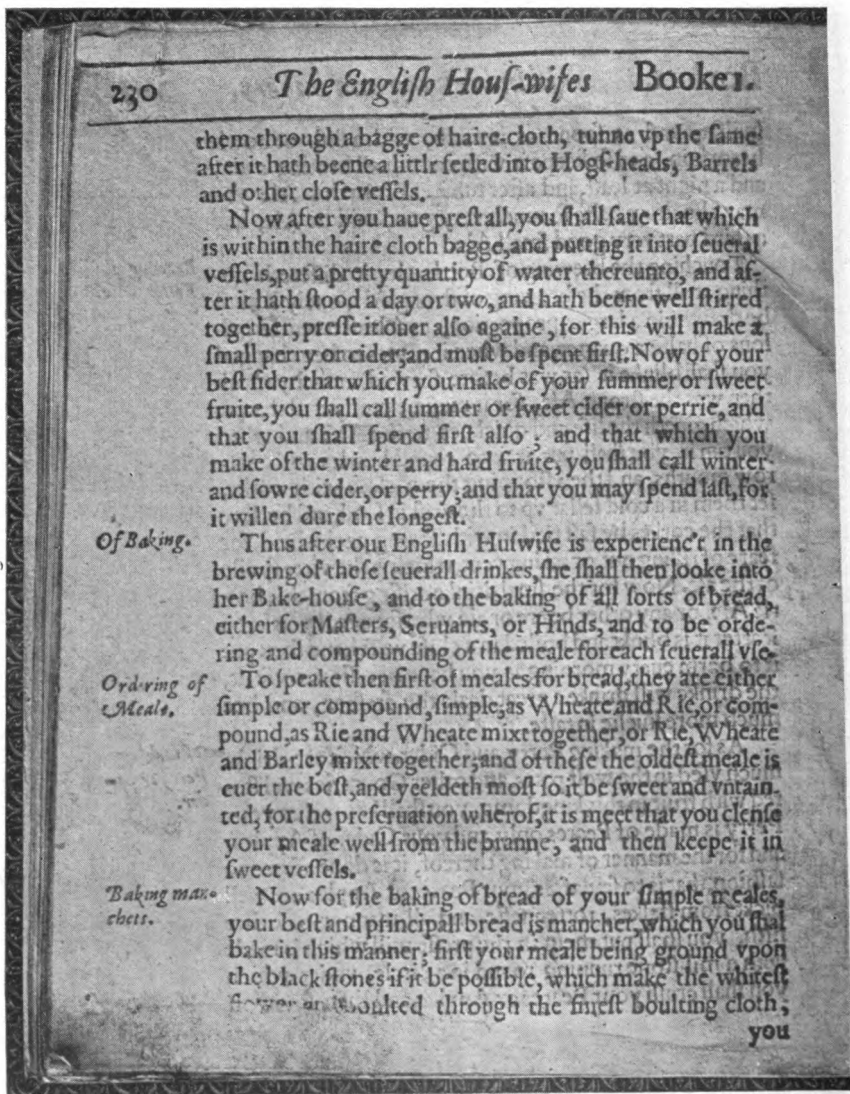 230 The Engliſh Houſ-wifes Booke1.
them through a bagge of haire-cloth, tunne vp the ſame
after it hath beene a littlr ſetled into Hogſ-heads, Barrels
and other cloſe veſſels.
Now after you haue preſt all, you ſhall ſaue that which
is within the haire cloth bagge, and putting it into ſeueral
veſſels, put a pretty quantity of water thereunto, and af-
ter it hath ſtood a day or two, and hath beene well ſtirred
together, preſſe it ouer alſo againe, for this will make a
ſmall perry or cider, and muſt be ſpent firſt. Now of your
beſt ſider that which you make of your ſummer or ſweet
fruite, you ſhall call ſummer or ſweet cider or perrie, and
that you ſhall ſpend firſt alſo ; and that which you
make of the winter and hard fruite, you ſhall call winter
and ſowre cider, or perry ; and that you may ſpend laſt, for
it willen dure the longeſt.
Of Baking.
Thus after our Engliſh Huſwife is experienc't in the
brewing of theſe ſeuerall drinkes, ſhe ſhall then looke into
her Bake-houſe, and to the baking of all ſorts of bread,
either for Maſters, Seruants, or Hinds, and to be orde-
ring and compounding of the meale for each ſeuerall vſe.
Ordring of
Meale.
To ſpeake then firſt of meales for bread, they are either
ſimple or compound, ſimple, as Wheate and Rie, or com-
pound, as Rie and Wheate mixt together, or Rie, Wheate
and Barley mixt together; and of theſe the oldeſt meale is
euer the beſt, and yeeldeth moſt ſo it be ſweet and vntain-
ted, for the preſeruation wherof, it is meet that you clenſe
your meale well from the branne, and then keepe it in
ſweet veſſels.
Baking man-
chets.
Now for the baking of bread of your ſimple meales,
your beſt and principall bread is manchet, which you ſhal
bake in this manner; firſt your meale being ground vpon
the black ſtones if it be poſſible, which make the whiteſt
boulted through the fineſt boulting cloth;
you